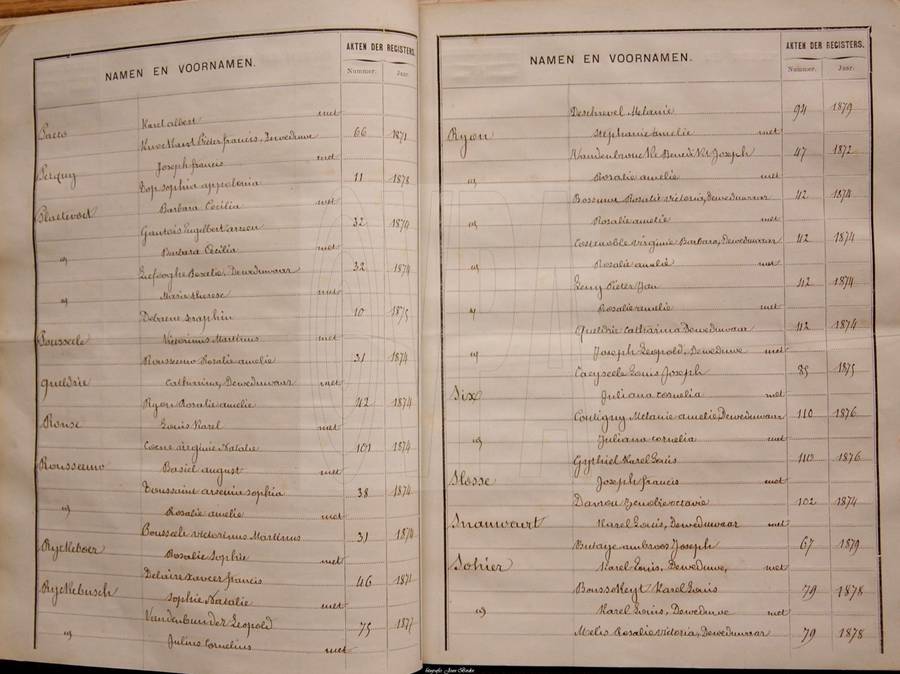 NAMEN EN VOORNAMEN.
AKTEN DER REGISTERS.
Nummer. Jaar.
Karel albert met
Pieter francis, Deweduwe 66 1871
Joseph francis met
Dop sophia appolonia 11 1878
Plaetevoet Barbara Cecilia met
Gantois Engelbert arsen 32 1874
" Barbara Cecilia met
Rosalie, Deweduwaar 32 1874
" Marie therese met
Debrene Seraphin 10 1875
Pousseele Victorinus Martinus met
Rousseeuw Rosalia amelie 31 1874
Queldrie Catharina, Deweduwaar met
Ryon Rosalie amelie 42 1874
Ronse Louis Karel met
Coene virginie Natalie 101 1874
Rousseeuw Basiel august met
Toussaint arsenia sophia 38 1874
" Rosalie amelie met
Pousseele victorinus Martinus 31 1874
Ryckeboer Rosalie Sophie met
Delaire xavier francis 46 1871
Ryckebusch Sophie Natalie met
Leopold 75 1877
" Julius Cornelius met
NAMEN EN VOORNAMEN.
AKTEN DER REGISTERS.
Nummer. Jaar.
Deschevel Melanie 94 1879
Ryon Stephanie amelie met
Vandenbroucke Benedikt Joseph 47 1872
" Rosalie amelie met
Rosalie victoria, Deweduwaar 42 1874
" Rosalie amelie met
Costenoble virginie Barbara, Deweduwaar 42 1874
" Rosalie amelie met
Leny Pieter Jan 42 1874
" Rosalie amelie met
Queldrie Catharina Deweduwaar 42 1874
" Joseph Leopold, Deweduwe met
Caeyseele Louis Joseph 85 1875
Six Juliana cornelia met
Coutigny Melanie amelie, Deweduwaar 110 1876
" Juliana cornelia met
Gythiel Karel Louis 110 1876
Slosse Joseph francis met
Davrou Zenobie octavie 102 1874
Snauwaert Karel Louis, Deweduwaar met
Butaye ambroos Joseph 67 1879
Sohier Karel Louis, Deweduwe, met
Bousskeyt Karel Louis 79 1878
" Karel Louis, Deweduwe met
Melis Rosalie victoria, Deweduwaar 79 1878